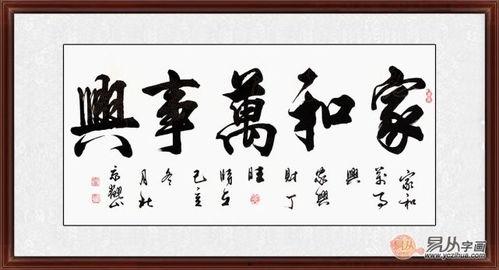 家和萬事興
家和
萬事
興
家興
財丁
旺
己亥
冬
月
易从字画
www.yczihua.com